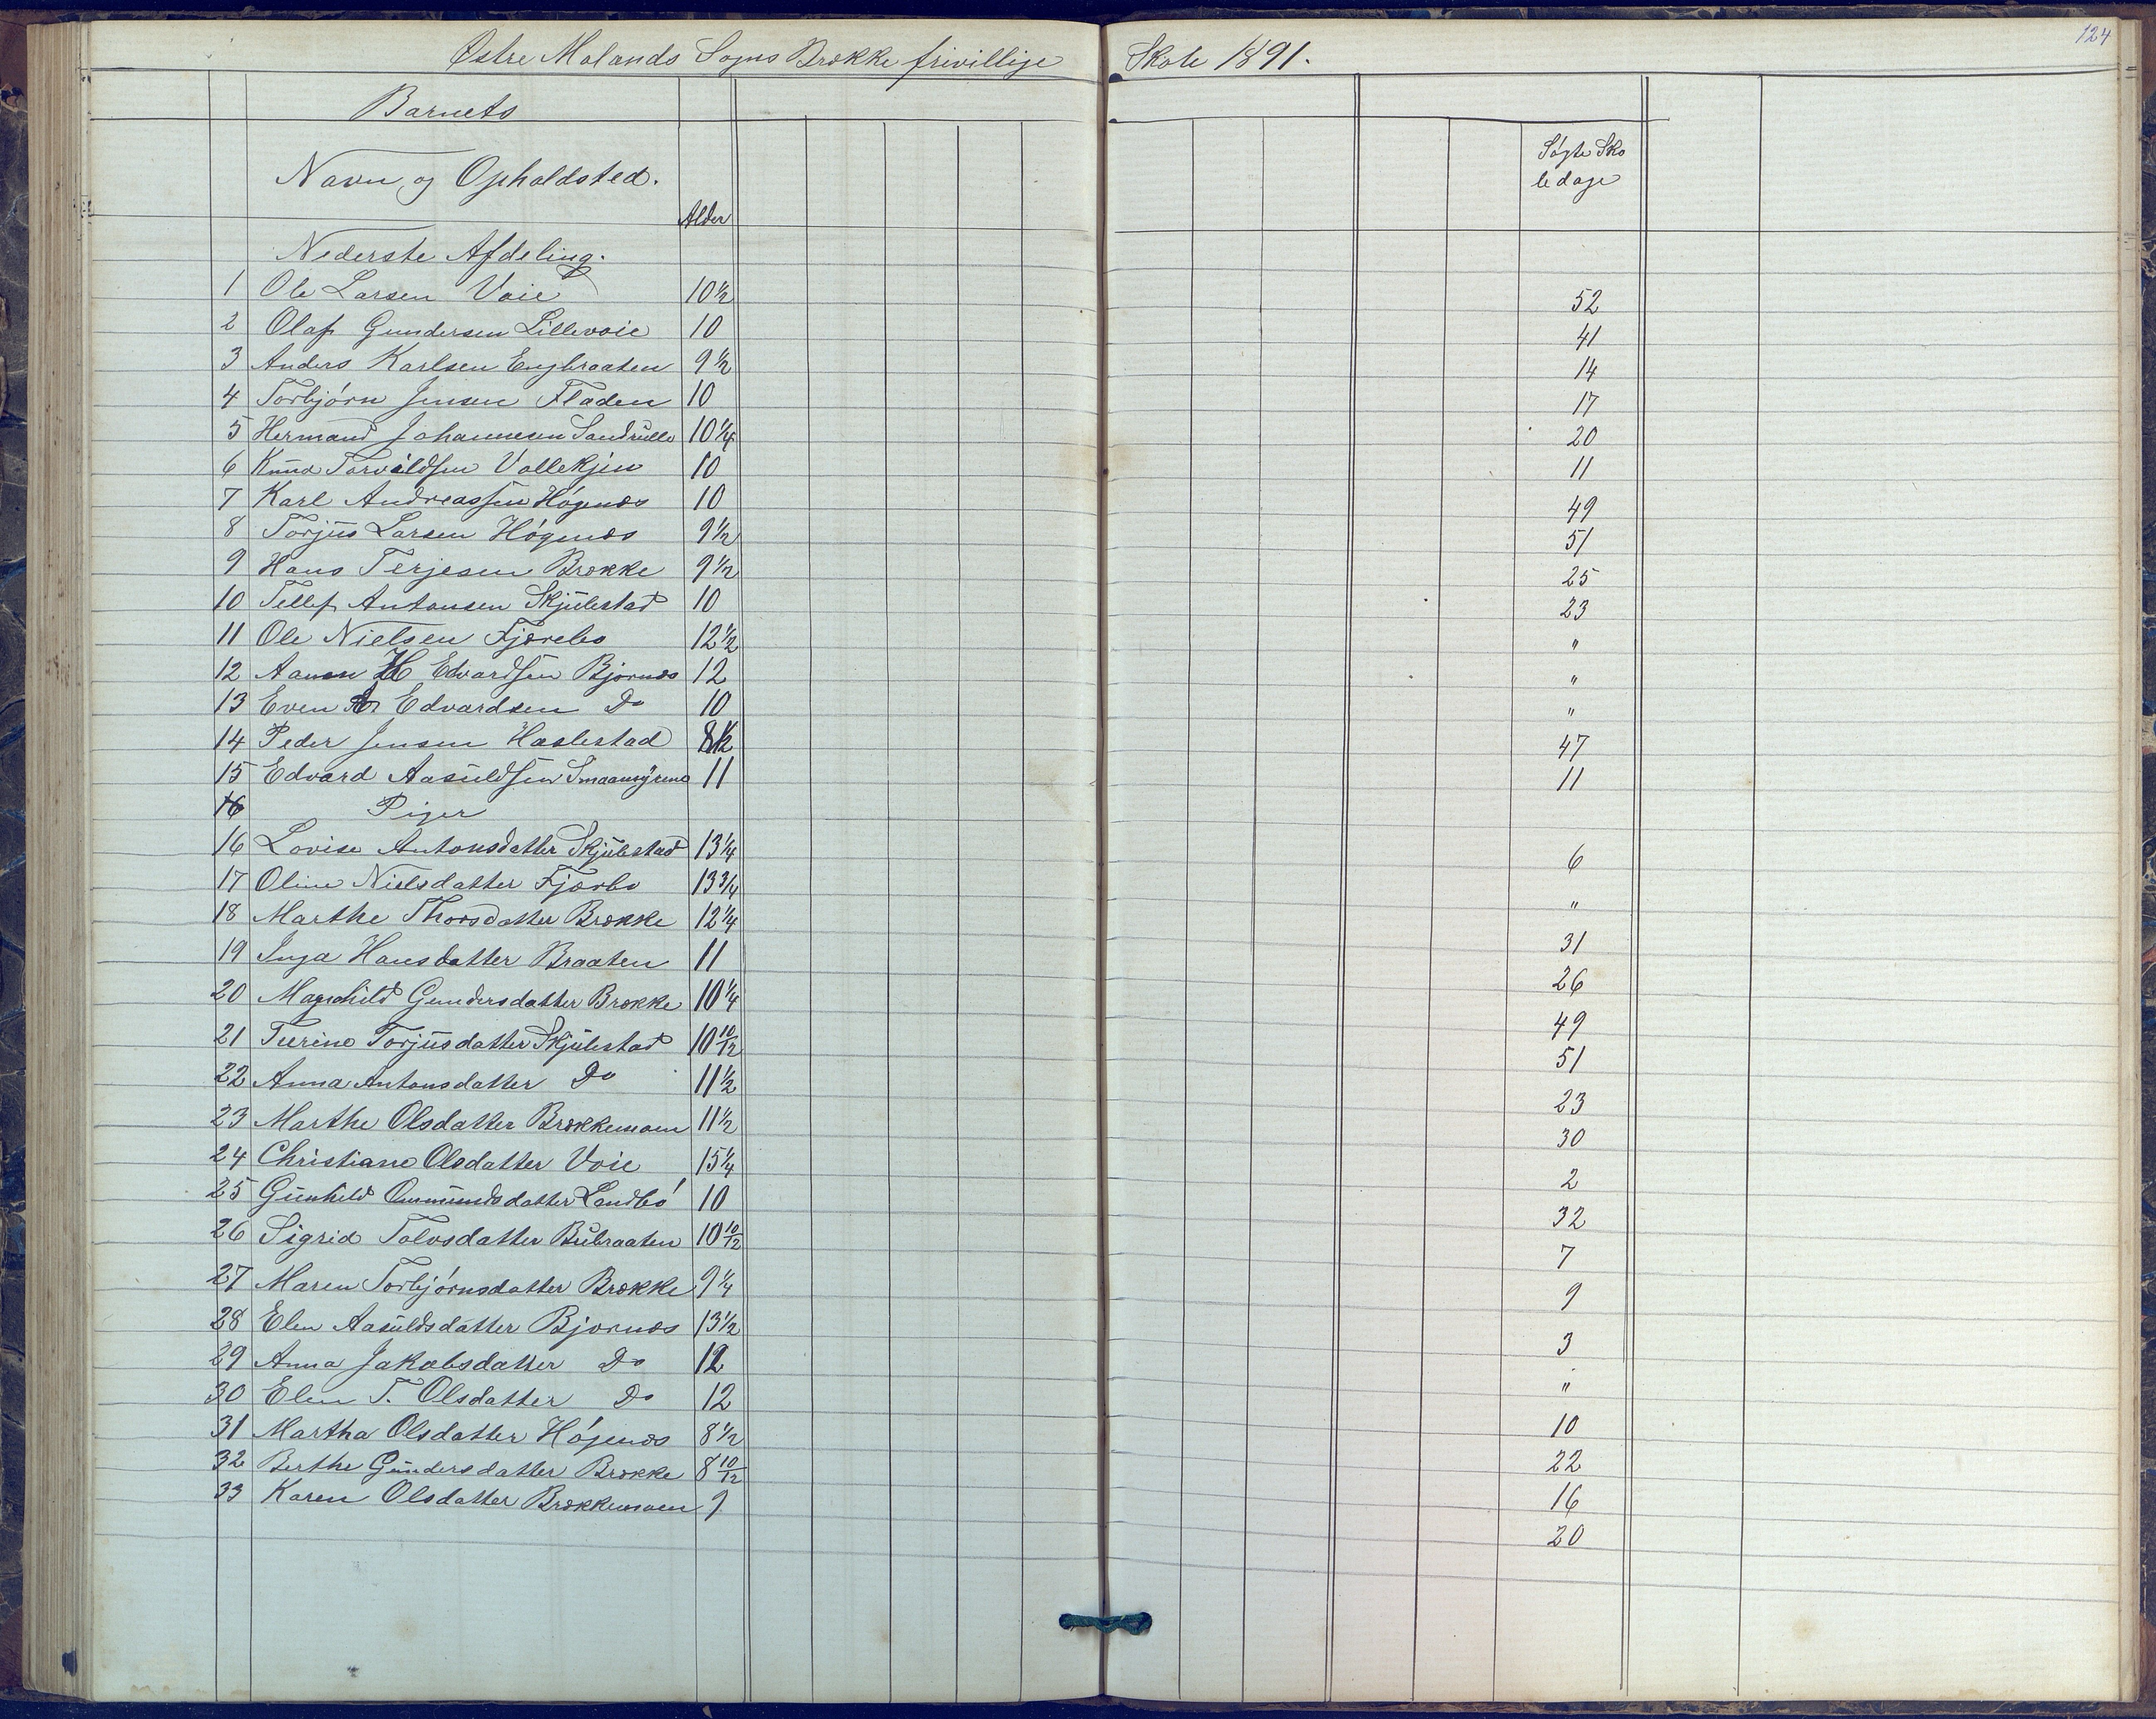 124
Østre Molands Sogns Brække frivillige Skole 1891.
Barnets
Navn og Opholdsted. Alder Søgte Sko
le dage
Nederste Afdeling.
1 Ole Larsen Voie 10½ 52
2 Olaf Gundersen Lillevoie 10 41
3 Anders Karlsen Engbraaten 9½ 14
4 Torbjörn Jensen Fladen 10 17
5 Hermand Johannesen 10¼ 20
6 Knud Torvildsen Vallekjen 10 11
7 Karl Andreassen Högenæs 10 49
8 Torjus Larsen Högenæs 9½ 51
9 Hans Terjesen Brække 9½ 25
10 Tellef Antonsen Skjulestad 10 23
11 Ole Nielsen Fjærebo 12½ "
12 Aanen H Edvardsen Bjornæs 12 "
13 Even Edvardsen Do 10 "
14 Peder Jensen Haslestad 8½ 47
15 Edvard Aasuldsen Smaamyrene 11 11
16 Piger
16 Lovise Antonsdatter Skjulestad 13¼ 6
17 Oline Nielsdatter Fjærbo 13¾ "
18 Marthe Thorsdatter Brække 12¼ 31
19 Inga Hansdatter Braaten 11 26
20 Magnhild Gundersdatter Brække 10¼ 49
21 Teerine Torjusdatter Skjulestad 10 10/12 51
22 Anna Antonsdatter Do 11½ 23
23 Marthe Olsdatter Brækkemoen 11½ 30
24 Christiane Olsdatter Voie 15¼ 2
25 Gunhild Omundsdatter Landbö 10 32
26 Sigrid Tolvsdatter Bubraaten 10 10/12 7
27 Maren Torbjörnsdatter Brække 9¼ 9
28 Elen Aasuldsdatter Bjornæs 13½ 3
29 Anna Jakobsdatter Do 12 "
30 Elen T. Olsdatter Do 12 10
31 Martha Olsdatter Högenæs 8½ 22
32 Berthe Gundersdatter Brække 8 10/12 16
33 Karen Olsdatter Brækkemoen 9 20